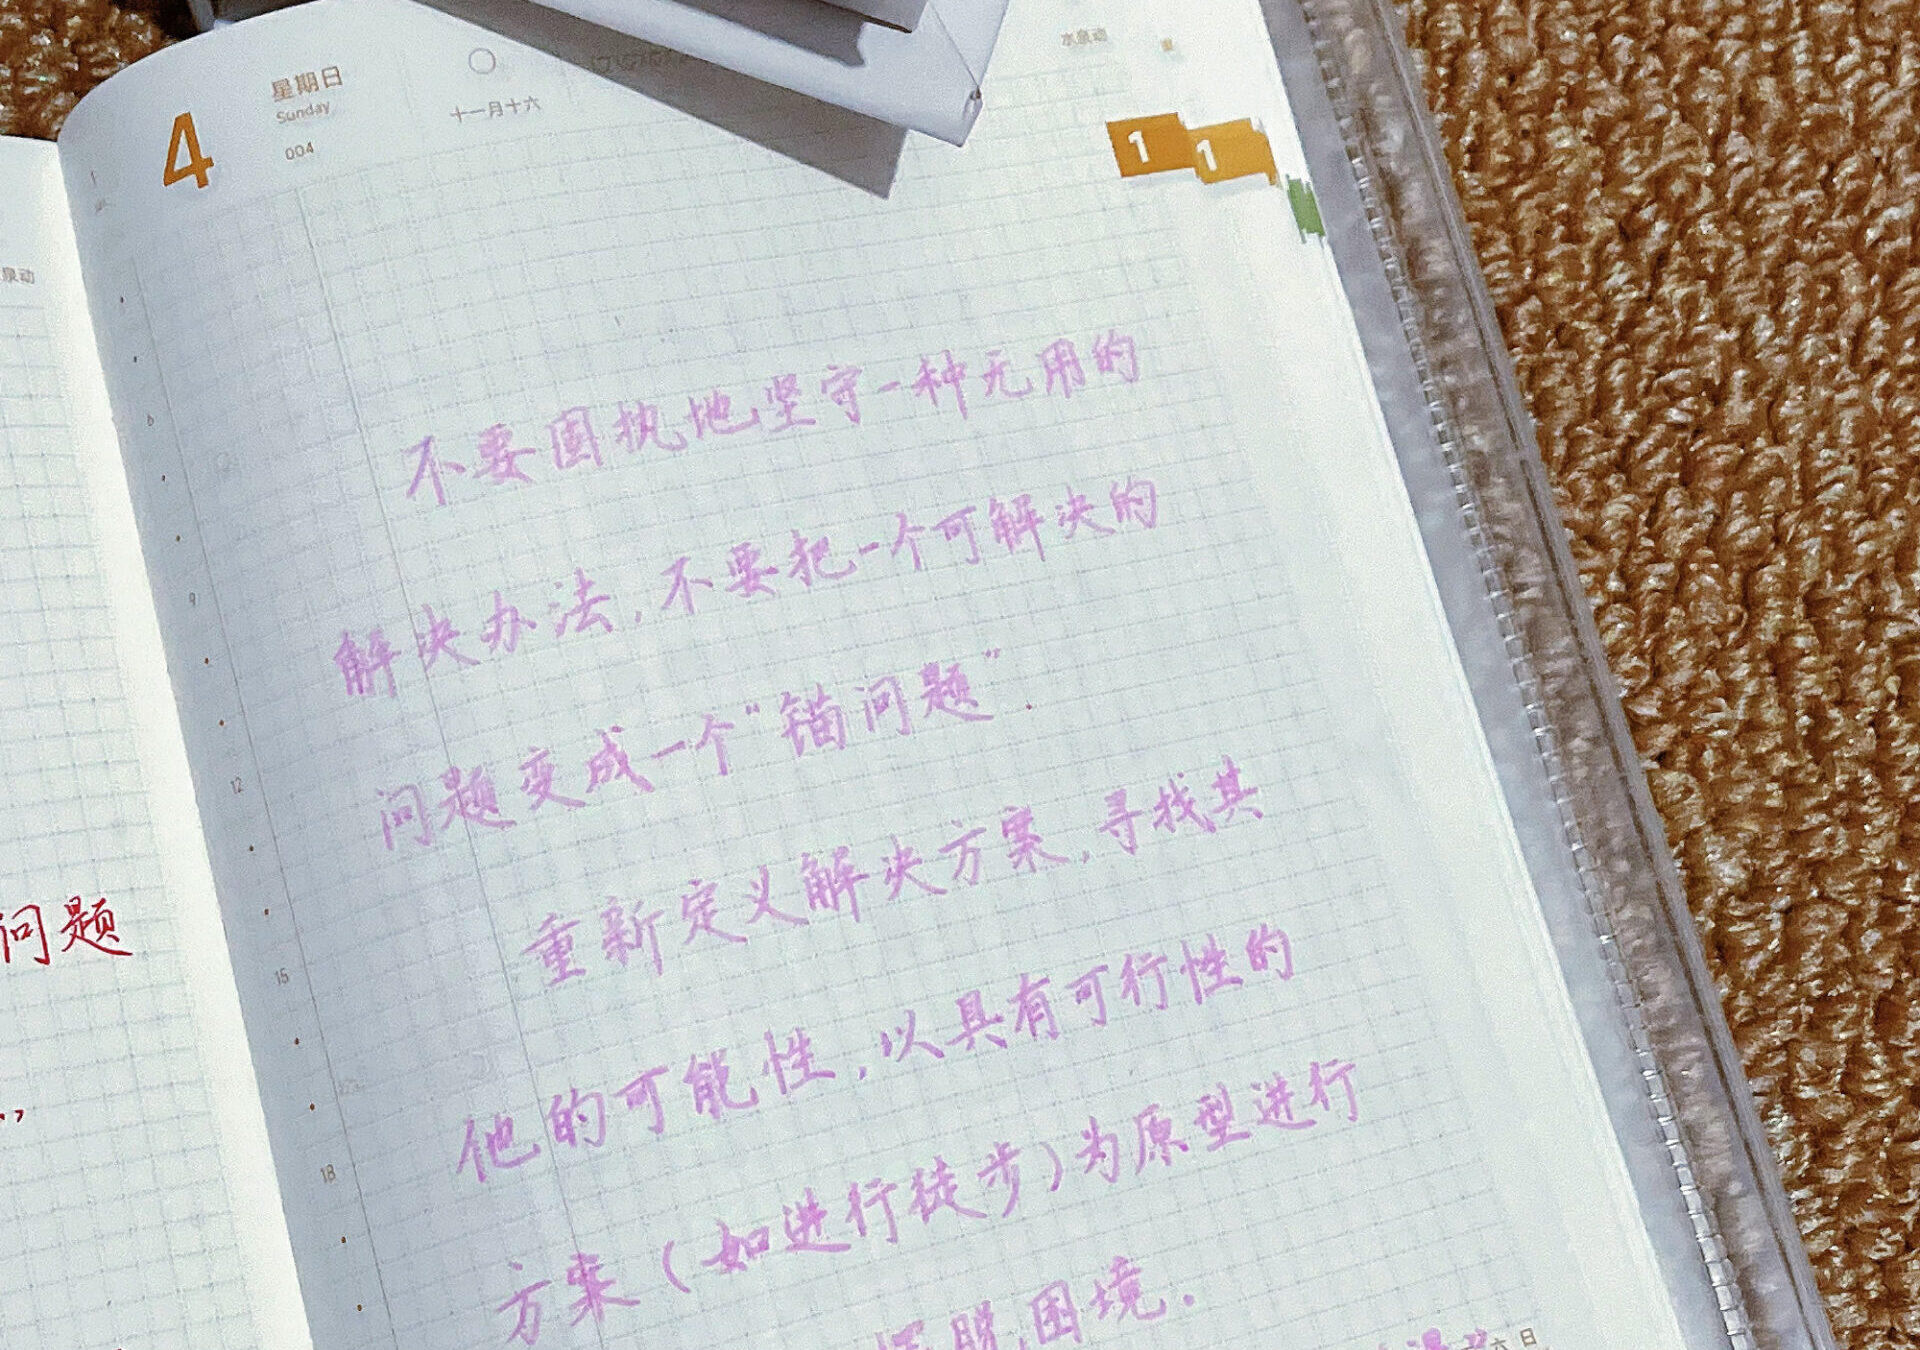 4
星期日
Sunday
004
十一月十六
水泉动
1
1
泉动
6
9
12
15
18
不要固执地坚守一种无用的
解决办法,不要把一个可解决的
问题变成一个"锚问题".
重新定义解决方案,寻找其
他的可能性,以具有可行性的
方案(如进行徒步)为原型进行
摆脱困境.
问题
"
六日